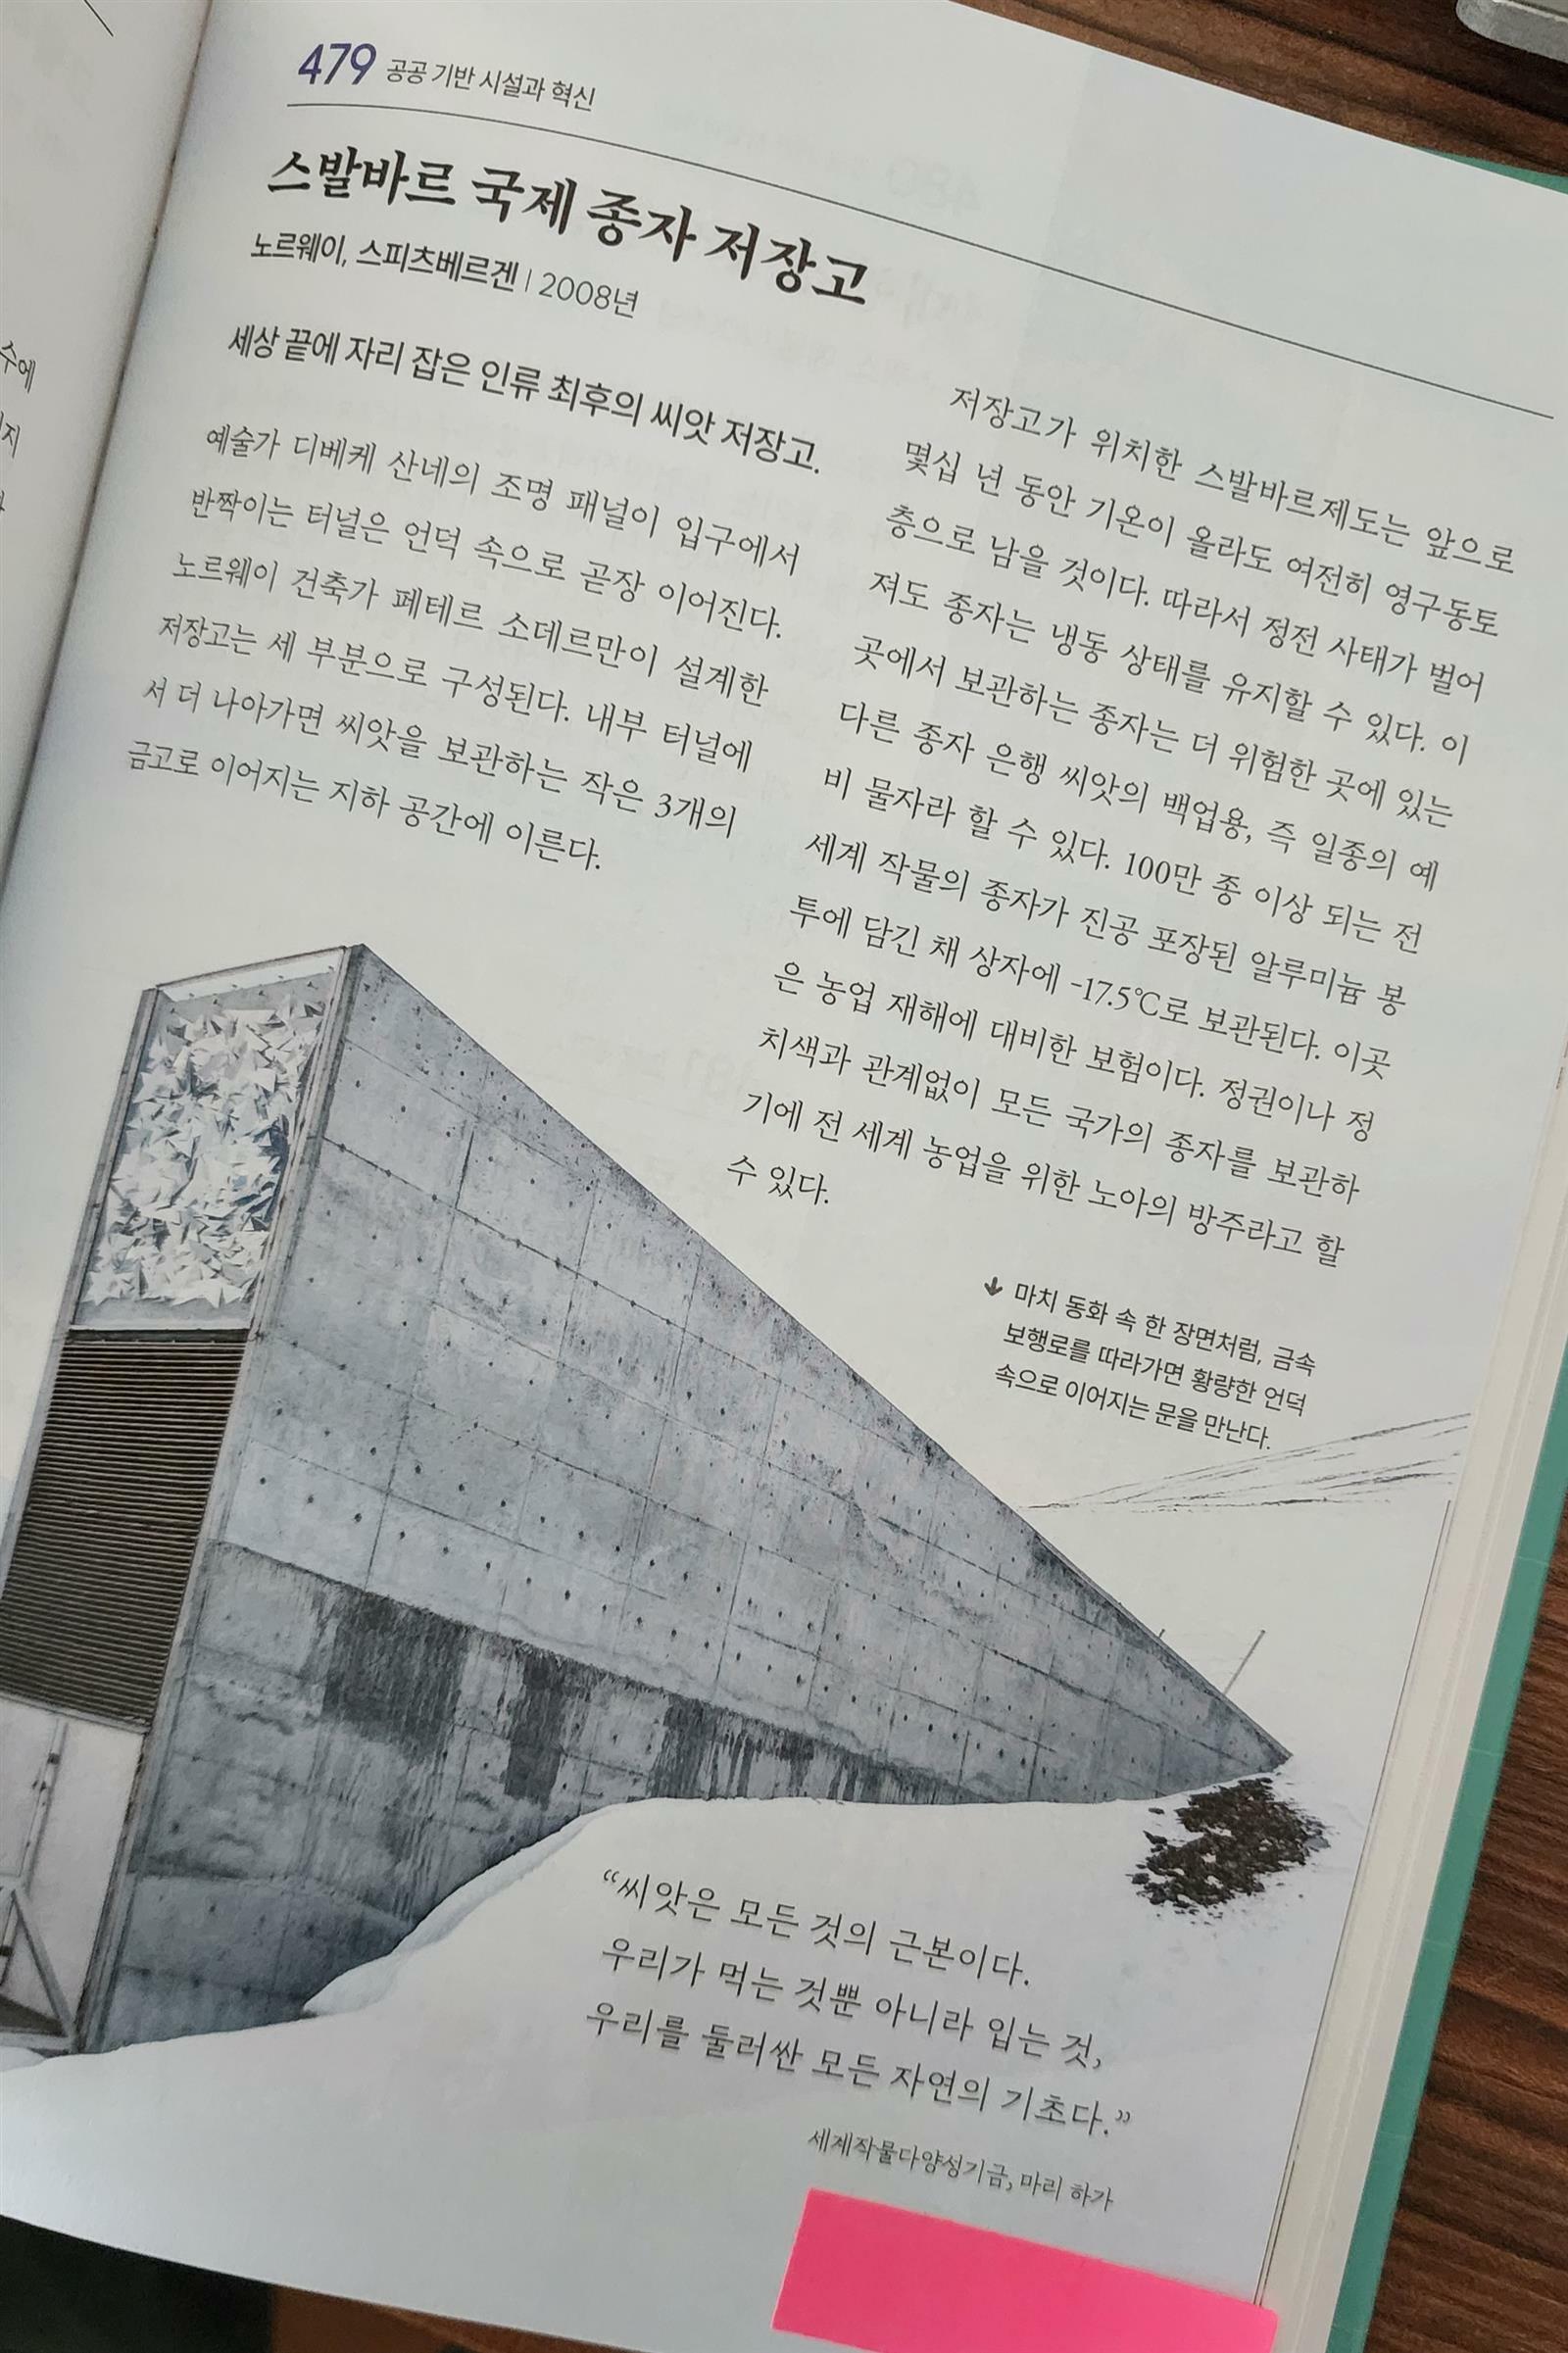 479 공공 기반 시설과 혁신
스발바르 국제 종자 저장고
노르웨이, 스피츠베르겐 | 2008년
세상 끝에 자리 잡은 인류 최후의 씨앗 저장고.
예술가 디베케 산네의 조명 패널이 입구에서
반짝이는 터널은 언덕 속으로 곧장 이어진다.
노르웨이 건축가 페테르 소데르만이 설계한
저장고는 세 부분으로 구성된다. 내부 터널에
서 더 나아가면 씨앗을 보관하는 작은 3개의
금고로 이어지는 지하 공간에 이른다.
저장고가 위치한 스발바르제도는 앞으로
몇십 년 동안 기온이 올라도 여전히 영구동토
층으로 남을 것이다. 따라서 정전 사태가 벌어
져도 종자는 냉동 상태를 유지할 수 있다. 이
곳에서 보관하는 종자는 더 위험한 곳에 있는
다른 종자 은행 씨앗의 백업용, 즉 일종의 예
비 물자라 할 수 있다. 100만 종 이상 되는 전
세계 작물의 종자가 진공 포장된 알루미늄 봉
투에 담긴 채 상자에 -17.5℃로 보관된다. 이곳
은 농업 재해에 대비한 보험이다. 정권이나 정
치색과 관계없이 모든 국가의 종자를 보관하
기에 전 세계 농업을 위한 노아의 방주라고 할
수 있다.
↓ 마치 동화 속 한 장면처럼, 금속
보행로를 따라가면 황량한 언덕
속으로 이어지는 문을 만난다.
“씨앗은 모든 것의 근본이다.
우리가 먹는 것뿐 아니라 입는 것,
우리를 둘러싼 모든 자연의 기초다.”
세계작물다양성기금, 마리 하가
수에